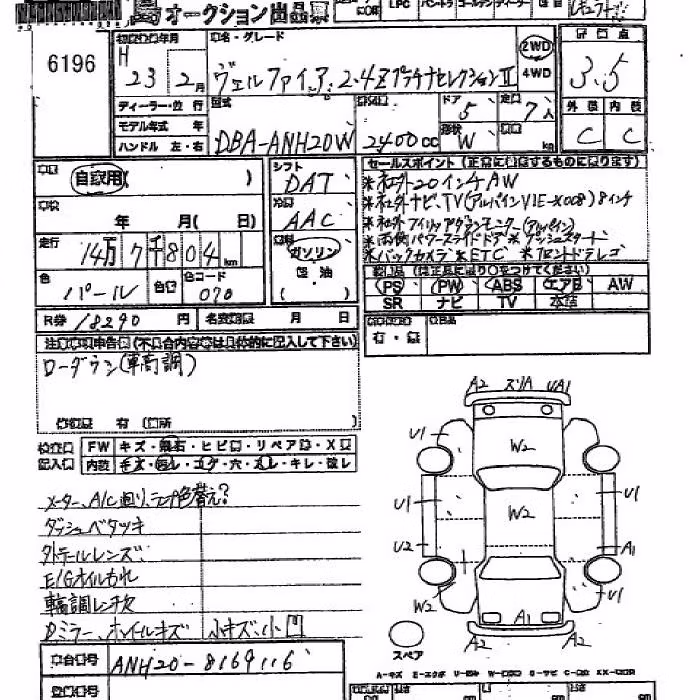 オークション出品票
6196
H 23 年 2 月
車名・グレード
ヴェルファイア 2.4Z プラチナセレクションII
2WD
4WD
評価点
3.5
外装 内装
C C
ディーラー・並行
モデル年式 年
ハンドル 左・右
型式
DBA-ANH20W
2400 cc
ドア 5
形状 W
定員 7人
kg
自家用( )
シフト
DAT
セールスポイント
※社外20インチAW
※社外ナビ、TV(アルパインVIE-X008)8インチ
※社外フィリップダウンモニター(アルパイン)
※両側パワースライドドア ※プッシュスタート
※バックカメラ ※ETC ※フロントテレコ
車検
年 月( 日)
冷房
AAC
走行 14万7千804 km
燃料
ガソリン
軽油
( )
色 パール
色コード 070
PS PW ABS エアB AW
SR ナビ TV 本革
R券 18290 円 名変期限 月 日
有・無
注意事項申告欄(不具合内容等は具体的に記入して下さい)
ローダウン(車高調)
有 (箇所
検査員
記入欄
FW キズ・飛石・ヒビ・リペア・X
内装 キズ・汚レ・コゲ・穴・スレ・キレ・破レ
メーター、A/C廻り、ランプ色替え?
ダッシュベタツキ
外テールレンズ
E/Gオイルもれ
車高調レンチ欠
Dミラー、ホイールキズ 小キズ、小凹
車台番号 ANH20-8169116
登録番号
A2 スリA UA1
U1
W2
U1
W2
U1
U2
A1
W2
U1
A1
A2 A2
スペア
A-キズ